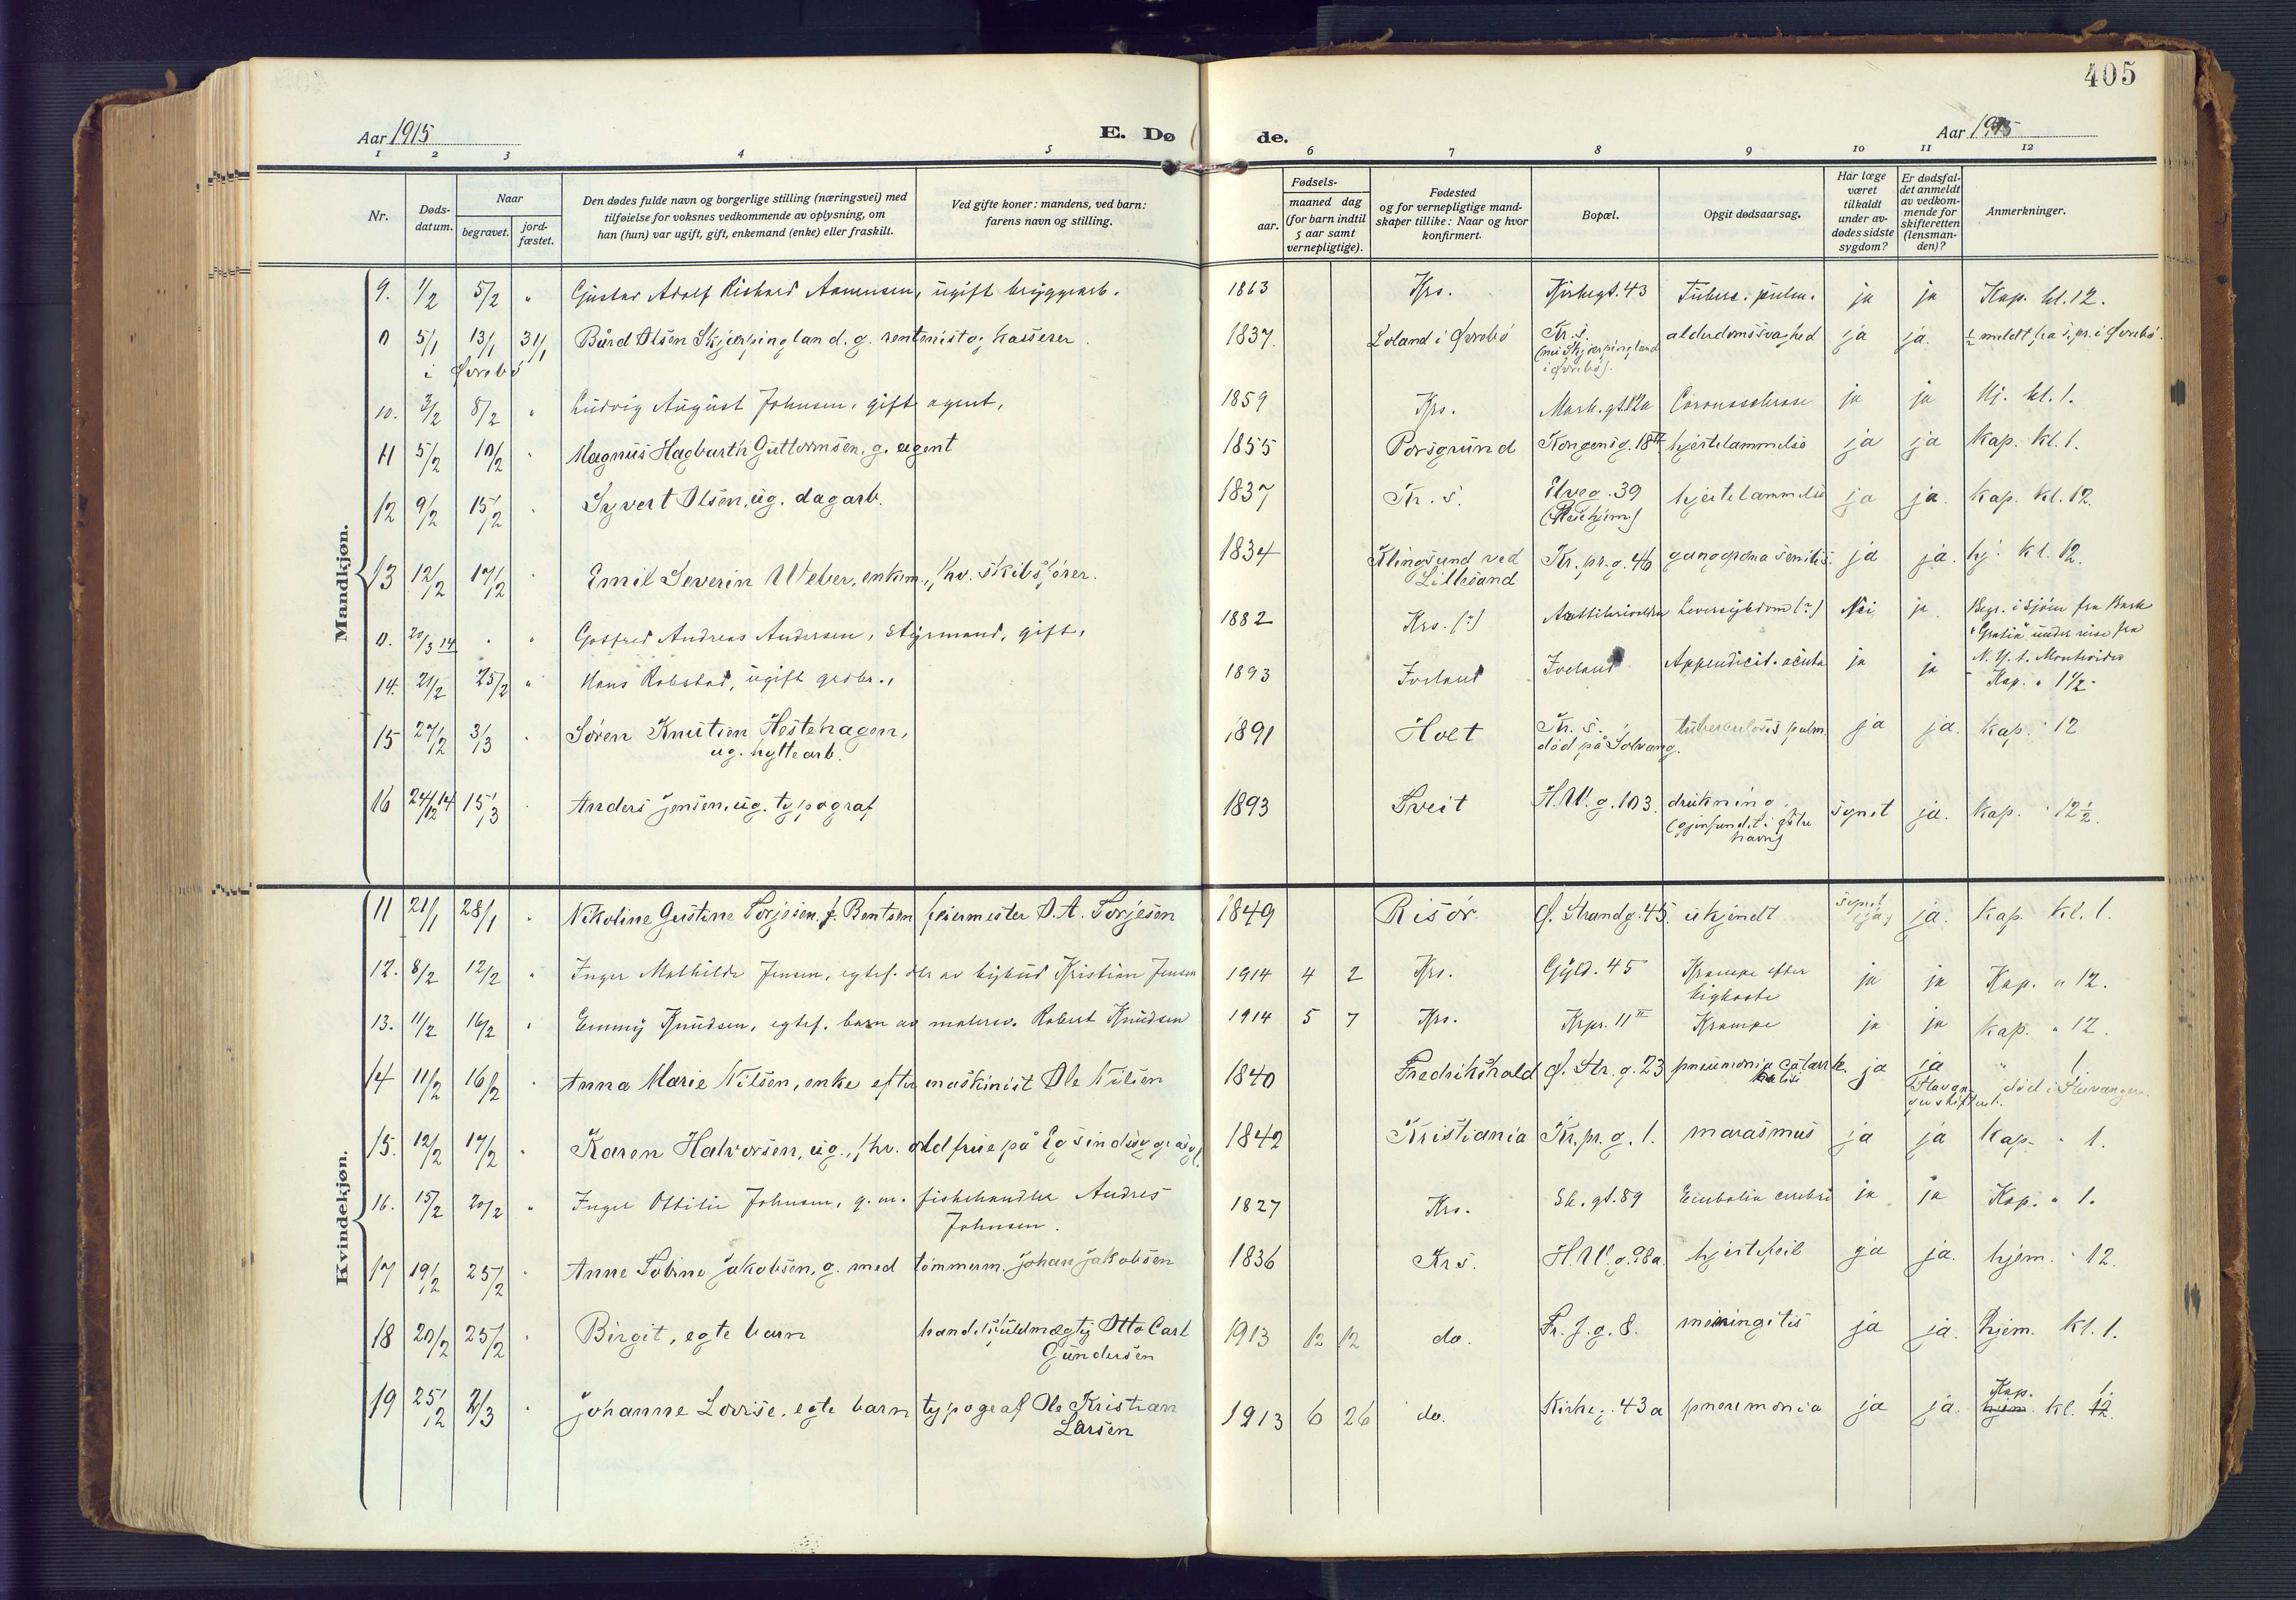 405
Aar 1915
E. Dø
de.
Aar 1915
1 2 3 4 5 6 7 8 9 10 11 12
Nr.
Døds-
datum.
Naar
begravet.
jord-
fæstet.
Den dødes fulde navn og borgerlige stilling (næringsvei) med
tilføielse for voksnes vedkommende av oplysning, om
han (hun) var ugift, gift, enkemand (enke) eller fraskilt.
Ved gifte koner: mandens, ved barn:
farens navn og stilling.
Fødsels-
aar.
maaned dag
(for barn indtil
5 aar samt
vernepligtige).
Fødested
og for vernepligtige mand-
skaper tillike: Naar og hvor
konfirmert.
Bopæl.
Opgit dødsaarsag.
Har læge
været
tilkaldt
under av-
dødes sidste
sygdom?
Er dødsfal-
det anmeldt
av vedkom-
mende for
skifteretten
(lensman-
den)?
Anmerkninger.
Mandkjøn.
9. 1/2 5/2 " Gustav Adolf Richard Aanensen, ugift bryggearb. 1863 Krs. Kirkegt. 43 Tuberc. pulm. ja ja Kap. kl. 12.
0 5/1 13/1 31/1 Bård Olsen Skjærpingland. g. rentenist og kasserer. 1837. Loland i Øvrebö Kr. s. alderdomssvaghed ja ja. 1/2 meldt fra s.pr. i Øvrebö.
i Øvrebö
(nu Skjærpingland
i Øvrebö).
10. 3/2 8/2 " Ludvig August Johnsen, gift agent, 1859 Krs. Mark. gt. 12a ja ja Hj. kl. 1.
11 5/2 10/2 " Magnus Hagbarth Guttormsen, g. agent 1855 Porsgrund Kongensg. 18 II hjertelammelse ja ja Kap. kl. 1.
12 9/2 15/2 " Syvert Olsen, ug. dagarb. 1837 Kr. s. Elveg. 39 hjertelammelse ja ja. Kap. kl. 12.
13 12/2 17/2 " Emil Severin Weber, enkem., fhv. skibsfører. 1834 ved Kr. pr. g. 46 senilis. ja ja. hj. kl. 12.
Lillesand
0. 20/3 14 " " Gotfred Andreas Andersen, styrmand, gift, 1882 Krs. (?) Leversygdom (?) Nei ja Begr. i sjöen fra Bark
"Gratia" under reise fra
N. Y. t. Montevideo
14. 21/2 25/2 " Hans Robstad, ugift grdbr., 1893 Iveland Iveland Appendicit. acuta ja ja Kap. " 1 1/2.
15 27/2 3/3 " Sören Knutsen Hestehagen, 1891 Holt Kr. s. tuberculosis pulm ja ja. Kap. " 12
ug. hyttearb.
död på Solvang.
16 24/12 14 15/3 " Anders Jensen, ug. typograf 1893 Tveit H. W. g. 103. drukning synet ja. Kap. " 12 1/2.
(gjenfundet i østre
havn)
Kvindekjøn.
11 21/1 28/1 " Nikoline Gustine Torjesen f. Bentsen feiermester O. A. Torjesen 1849 Risör Ø. Strandg. 45. ukjendt synet ja. Kap. kl. 1.
12. 8/2 12/2 " Inger Mathilde Jensen, egtef. dtr av bybud Kristian Jensen 1914 4 2 Krs. Gyld. 45 Krampe efter ja ja Kap. " 12.
kighoste
13. 11/2 16/2 " Emmy Knudsen, egtef. barn av matersv. Robert Knudsen 1914 5 7 Krs. Krpr. 11 II Krampe ja ja Kap. " 12.
14 11/2 16/2 " Anna Marie Nilsen, enke efter maskinist Ole Nilsen 1840 Fredrikshald Ø. Str. g. 23 pneumonia catarrhalis ja ja " 1
død i Stavanger.
15. 12/2 17/2 " Karen Halvorsen, ug., fhv. oldfrue på Eg sindsygeasyl. 1842 Kristiania Kr. pr. g. 1. marasmus ja ja Kap. " 1.
16. 15/2 20/2 " Inger Ottilie Johnsen, g. m. fiskehandler Andres 1827 Krs. Sk. gt. 89 Embolia cerebri ja ja Kap. " 1.
Johnsen.
17 19/2 25/2 " Anne Tobine Jakobsen, g. med tömmerm. Johan Jakobsen 1836 Krs. H. W. g. 98a. hjertefeil ja ja. hjem. " 12.
18 20/2 25/2 " Birgit, egte barn handelsfuldmægtig Otto Carl 1913 12 12 do. Fr. f. g. 8. meningitis ja ja. hjem. kl. 1.
Gundersen
19 25/2 2/3 " Johanne Lovise, egte barn typograf Ole Kristian 1913 6 26 do. Kirkeg. 43a pneumonia ja ja. Kap. kl. 1.
Larsen